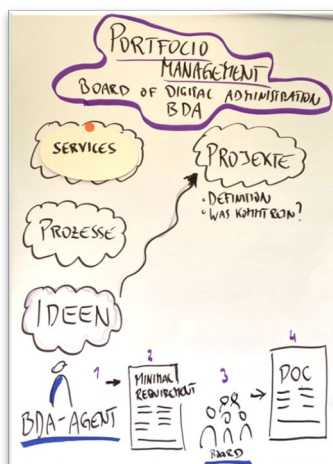 PORTFOLIO
MANAGEMENT
BOARD OF DIGITAL ADMINISTRATION
BDA
SERVICES
PROJEKTE
• DEFINITION
• WAS KOMMT REIN?
PROZESSE
IDEEN
1
2
3
4
MINIMAL
REQUIREMENT
POC
BDA-AGENT
BOARD